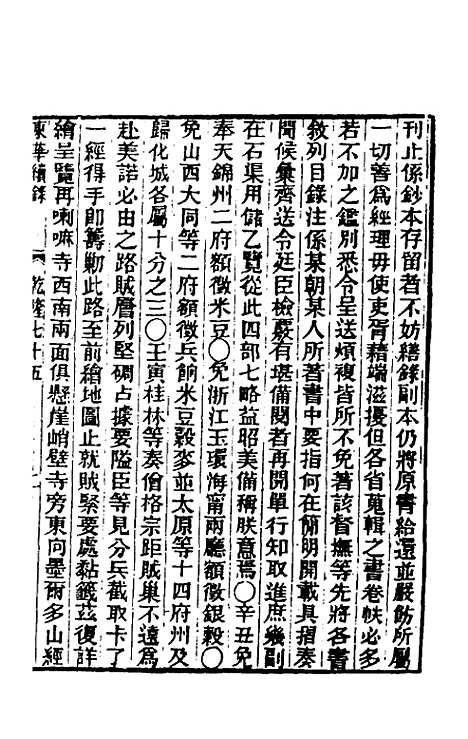 刊止係鈔本存留者不妨繕錄副本仍將原書給還並嚴飭所屬
一切善爲經理毋使吏胥藉端滋擾但各省蒐輯之書卷帙必多
若不加之鑑別悉令呈送煩複皆所不免著該督撫等先將各書
敘列目錄注係某朝某人所著書中要指何在簡明開載具摺奏
聞候彙齊送令廷臣檢覈有堪備閱者再開單行知取進庶幾副
在石渠用儲乙覽從此四部七略益昭美備稱朕意焉〇辛丑免
奉天錦州二府額徵米豆〇免浙江玉環海甯兩廳額徵銀穀〇
免山西大同等二府額徵兵餉米豆穀麥並太原等十四府州及
歸化城各屬十分之三〇壬寅桂林等奏僧格宗距賊巢不遠爲
赴美諾必由之路賊層列堅碉占據要隘臣等見分兵截取卡了
一經得手卽籌勦此路至前繪地圖止就賊緊要處黏籤茲復詳
繪呈覽再喇嘛寺西南兩面俱懸崖峭壁寺旁東向墨爾多山經
東華續錄 乾隆七十五